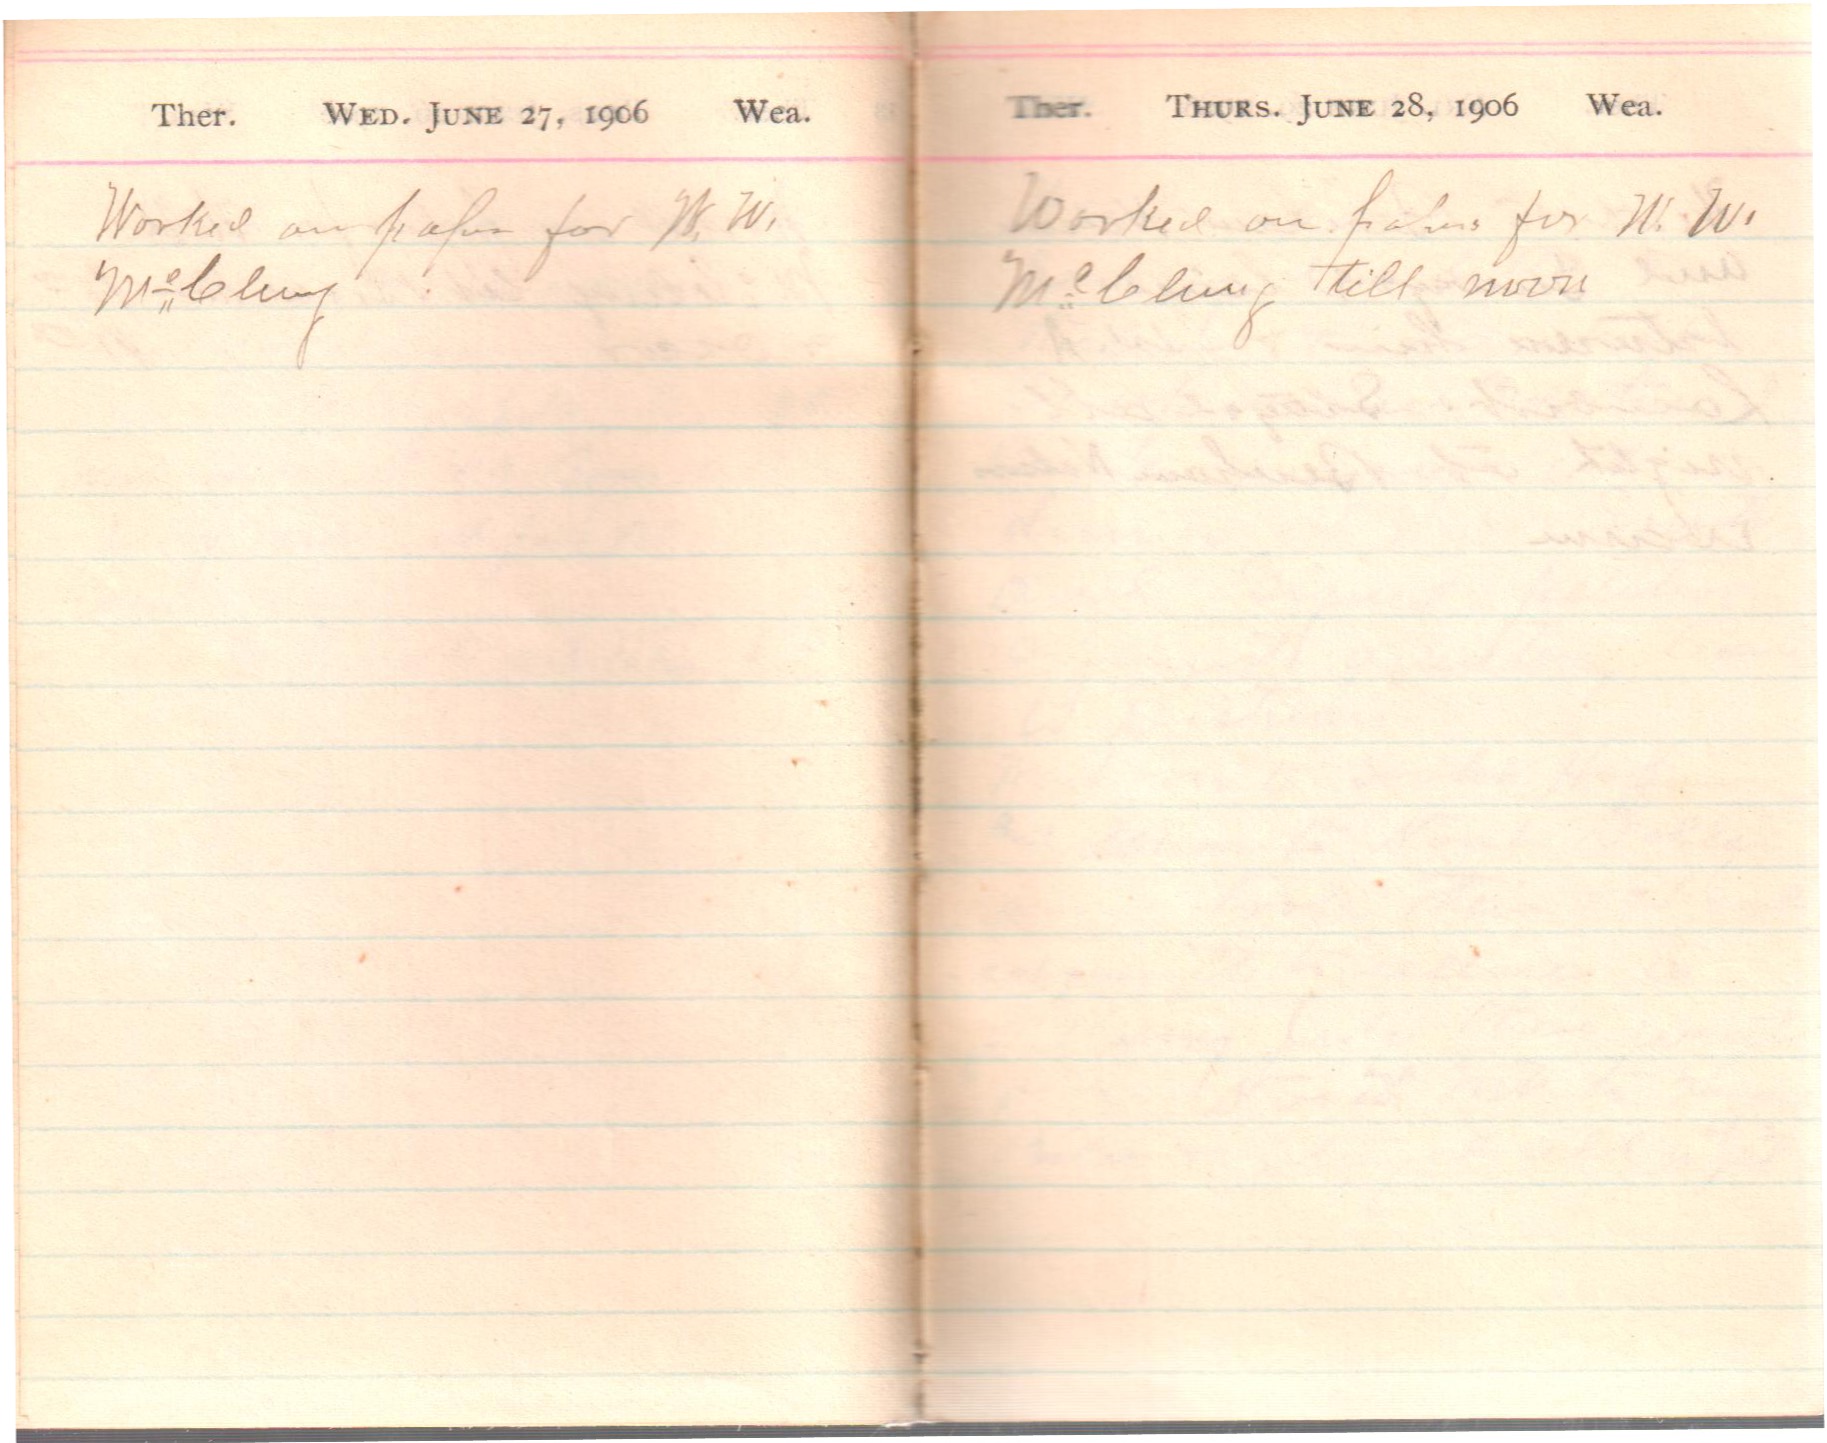 Ther. WED. JUNE 27, 1906 Wea.
Worked on paper for W. W.
McClung
Ther. THURS. JUNE 28, 1906 Wea.
Worked on paper for W. W.
McClung till noon